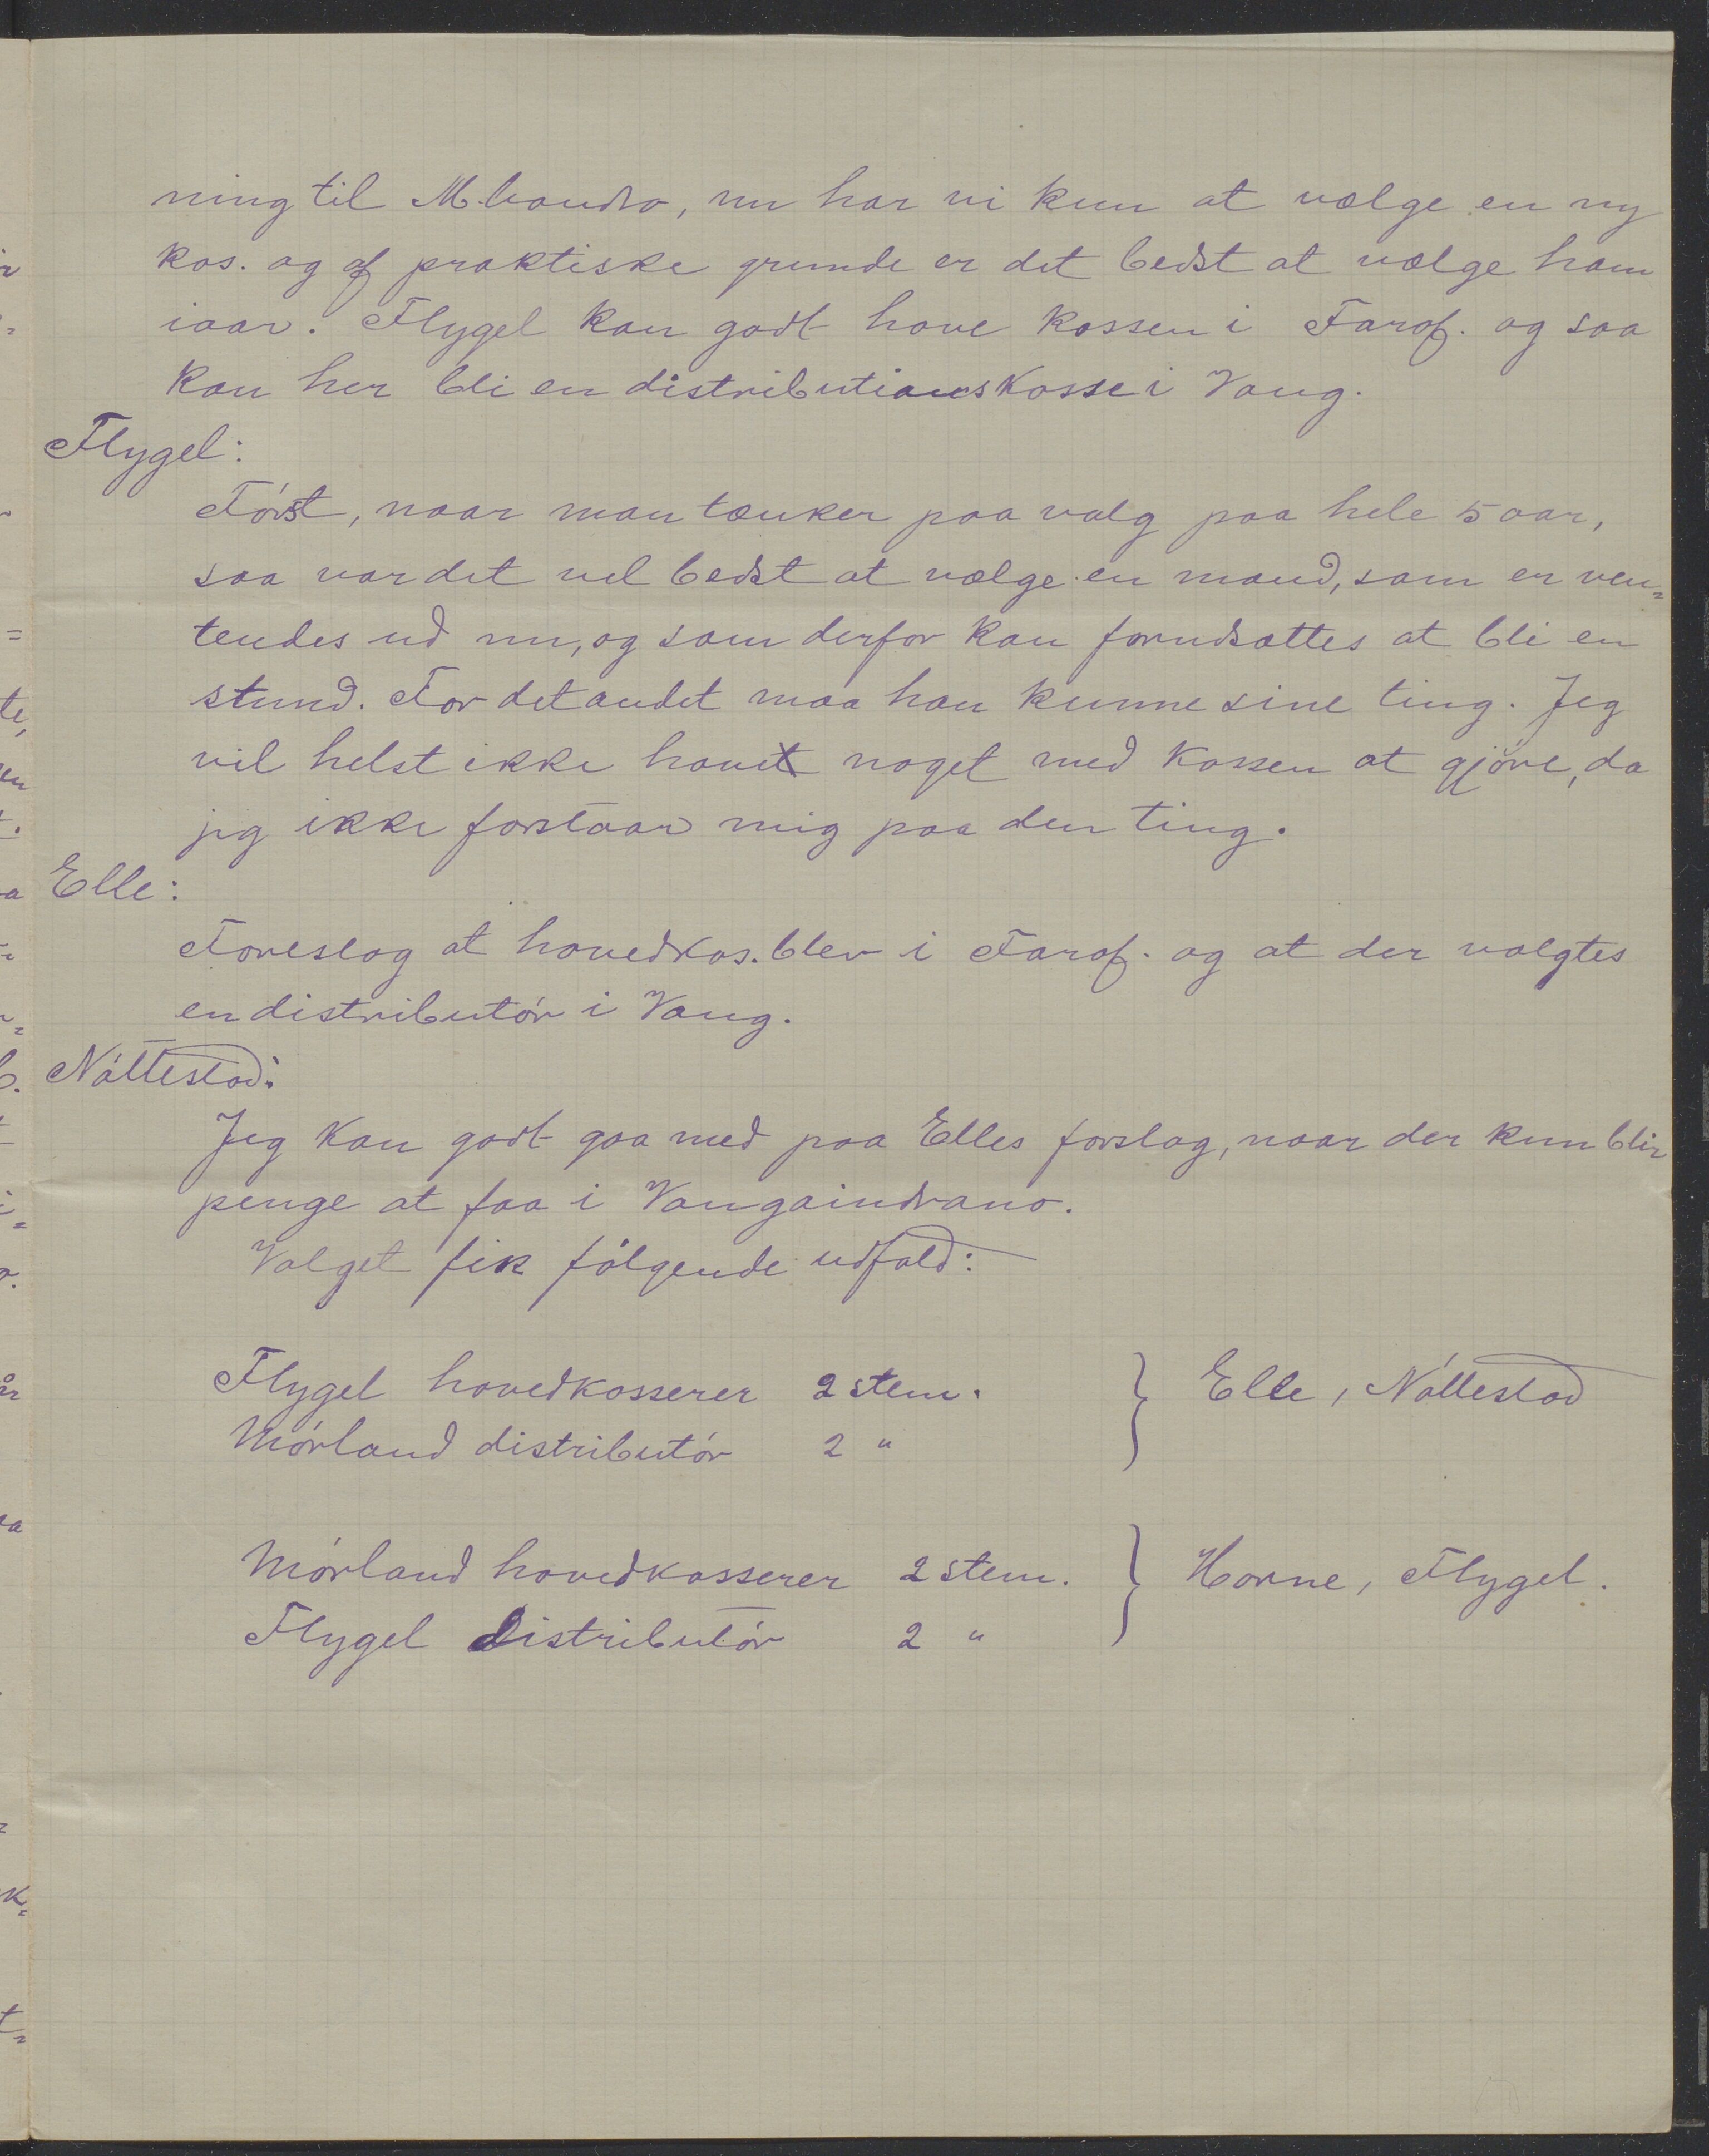 ning til Mbandro, nu har vi kun at vælge en ny
kas. og af praktiske grunde er det bedst at vælge ham
iaar. Flygel kan godt have kassen i Faraf. og saa
kan her bli en distributionskasse i Vang.
Flygel:
Først, naar man tænker paa valg paa hele 5 aar,
saa var det vel bedst at vælge en mand, som er ven=
tendes ud nu, og som derfor kan forudsættes at bli en
stund. For det andet maa han kunne sine ting. Jeg
vil helst ikke have noget med kassen at gjøre, da
jeg ikke forstaar mig paa den ting.
Elle:
Foreslog at hovedkas. blev i Faraf. og at der valgtes
en distributør i Vang.
Nøttestad:
Jeg kan godt gaa med paa Elles forslag, naar der kun blir
penge at faa i Vangaindrano.
Valget fik følgende udfald:
Flygel hovedkasserer 2 stem. } Elle, Nøttestad
Mørland distributør 2 "
Mørland hovedkasserer 2 stem. } Horne, Flygel.
Flygel distributør 2 "